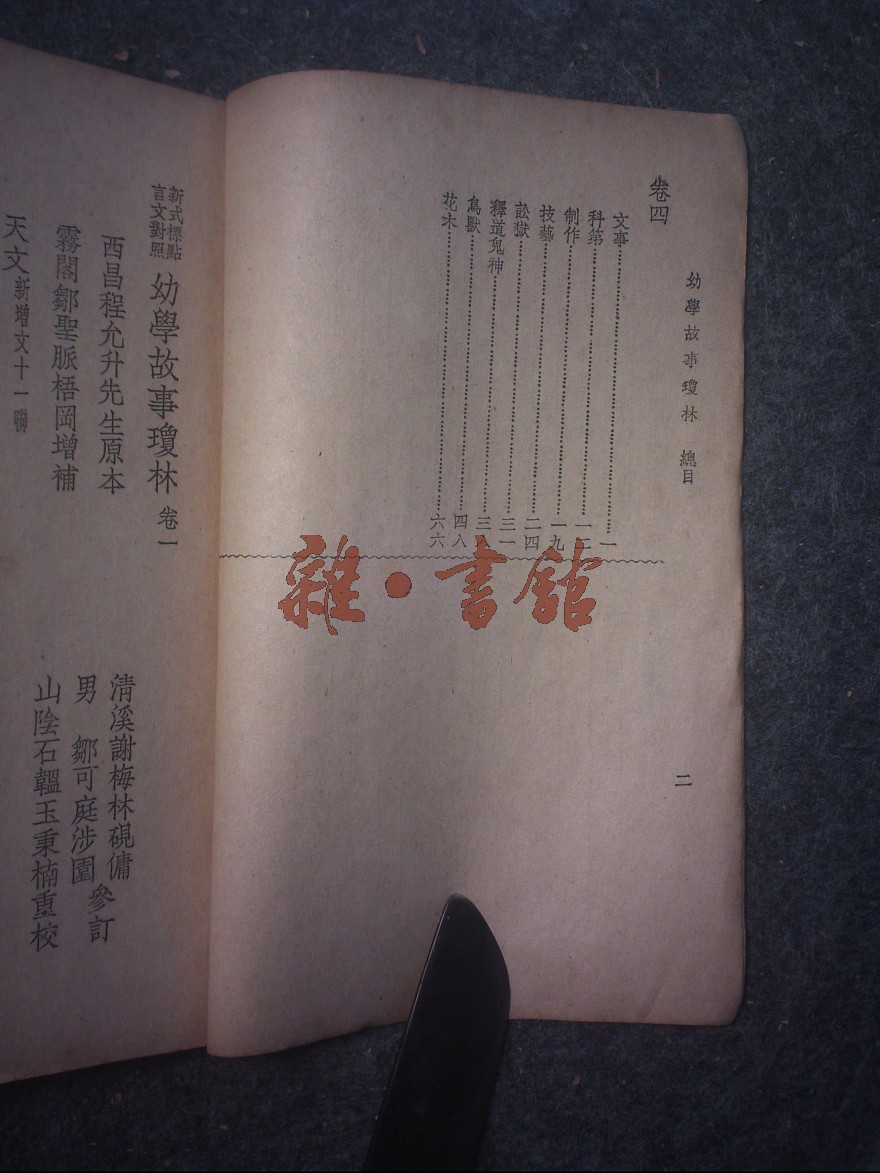 幼學故事瓊林 總目
二
卷四
文事……一
科第……一二
制作……一九
技藝……二四
訟獄……三一
釋道鬼神……三八
鳥獸……四八
花木……六六
雜·書館
新式標點
言文對照
幼學故事瓊林 卷一
西昌程允升先生原本
霧閣鄒聖脈梧岡增補
清溪謝梅林硯傭
男 鄒可庭涉園
參訂
山陰石韞玉秉楠重校
天文 新增文十一聯